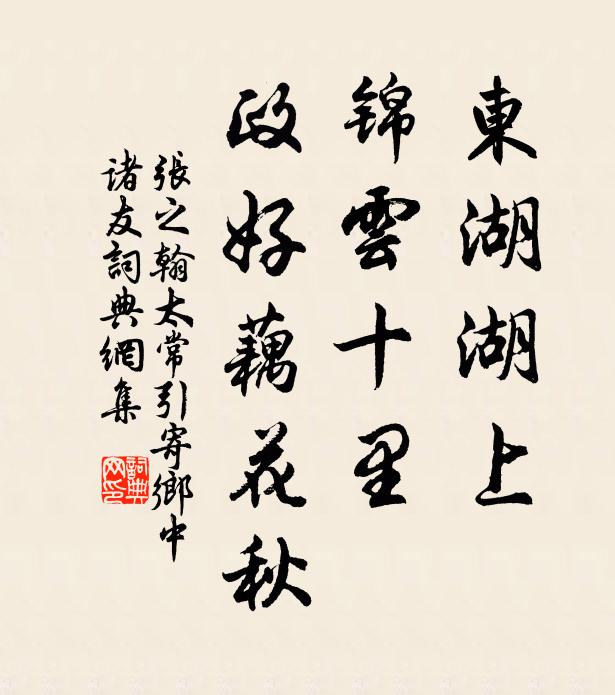 東湖湖上
锦雲十里
政好藕花秋
張之翰太常引寄鄉中
诸友詞典網集
詞典
网印